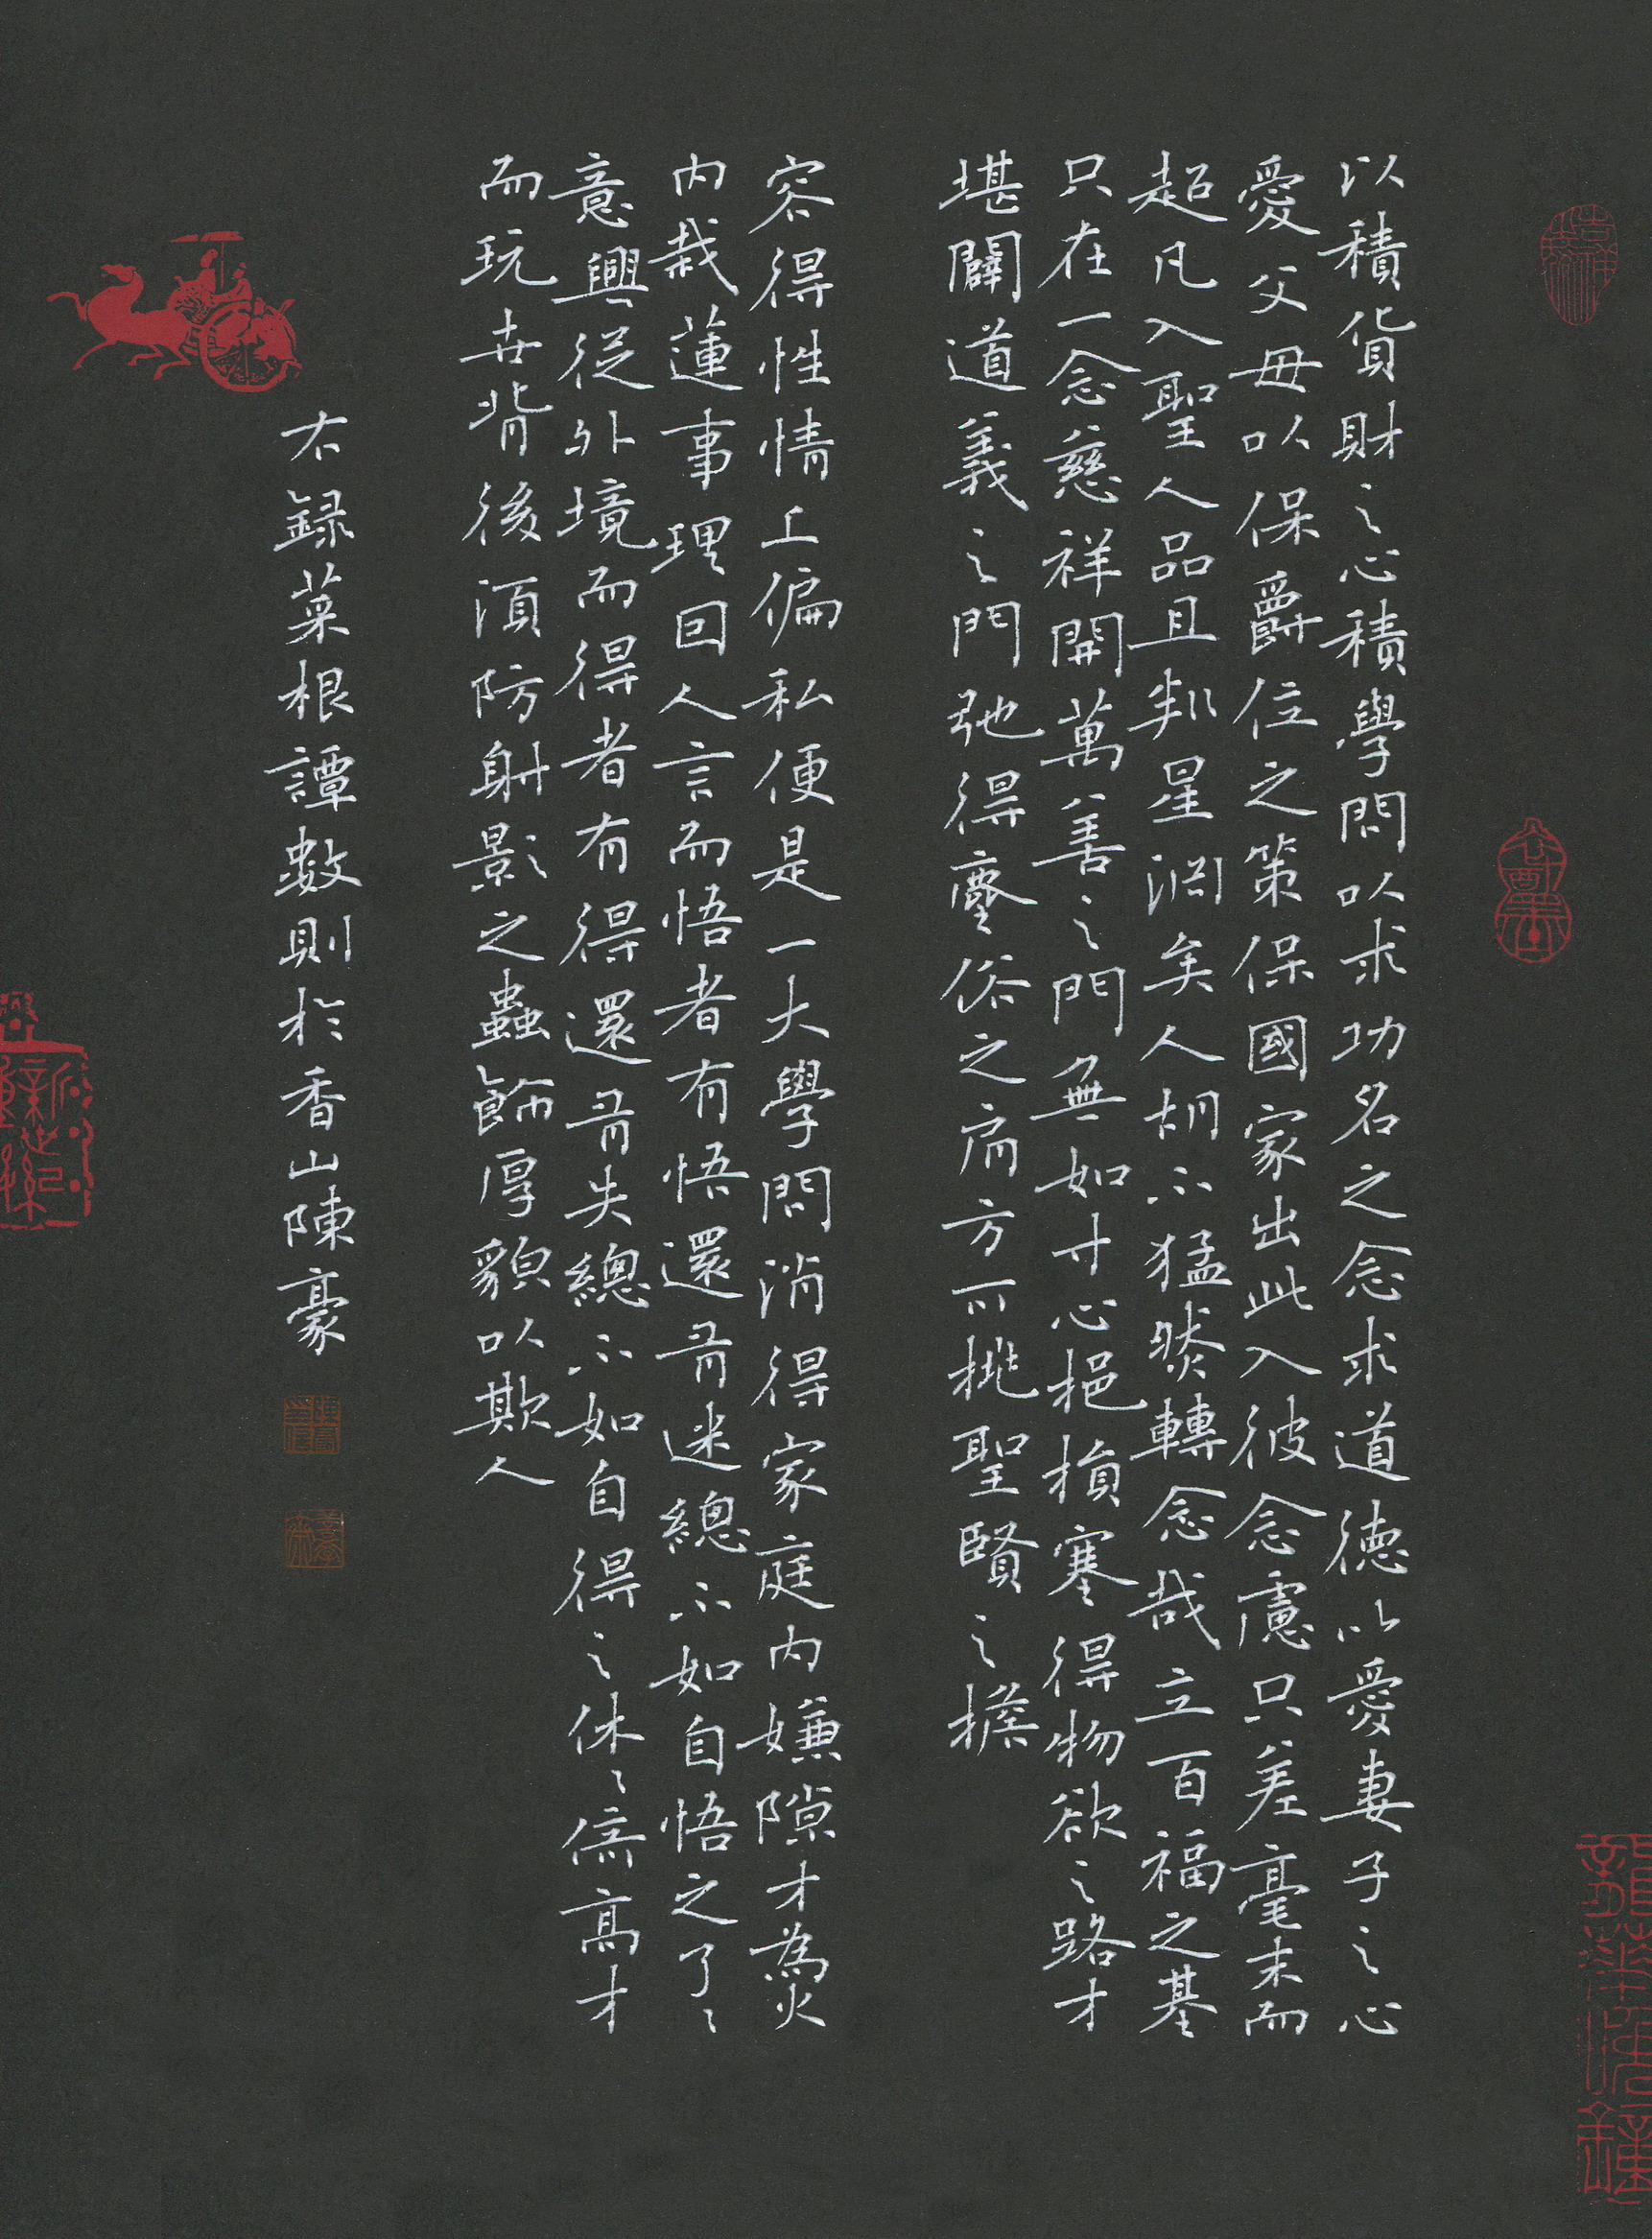 以積貨財之心積學問以求功名之念求道德以愛妻子之心
愛父母以保爵位之策保國家出此入彼念慮只差毫末而
超凡入聖人品且判星淵矣人胡不猛然轉念哉立百福之基
只在一念慈祥開萬善之門無如寸心挹損塞得物欲之路才
堪闢道義之門弛得塵俗之肩方可挑聖賢之擔
容得性情上偏私便是一大學問消得家庭內嫌隙才為火
內栽蓮事理因人言而悟者有悟還有迷總不如自悟之了〻
意興從外境而得者有得還有失總不如自得之休〻倚高才
而玩世背後須防射影之蟲飾厚貌以欺人
右錄菜根譚數則於香山陳豪